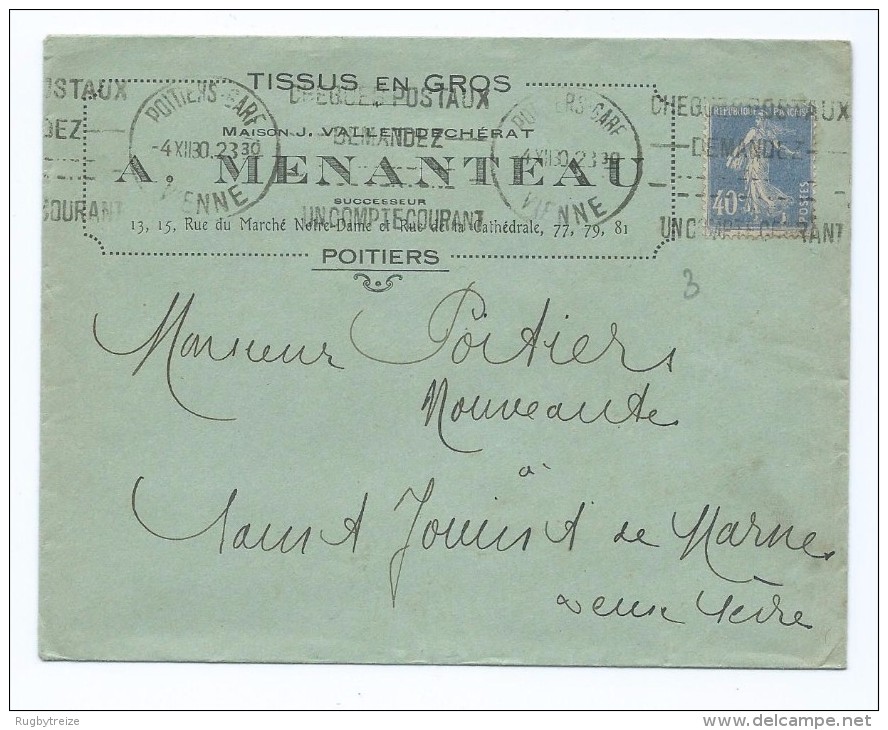 TISSUS EN GROS
MAISON J. VALLET-DECHÉRAT
A. MENANTEAU
SUCCESSEUR
13, 15, Rue du Marché Notre-Dame et Rue de la Cathédrale, 77, 79, 81
POITIERS
OSTAUX
DEZ
COURANT
POITIERS-GARE
-4 XII 30. 23 30
VIENNE
CHEQUES POSTAUX
DEMANDEZ
UN COMPTE COURANT
POITIERS-GARE
-4 XII 30. 23 30
VIENNE
CHEQUES POSTAUX
DEMANDEZ
UN COMPTE COURANT
REPUBLIQUE FRANÇAISE
40c
POSTES
3
Monsieur Poitiers
Nouveauté
à
Saint Jouint de Marne
Deux Sèvre
Rugbytreize
www.delcampe.net